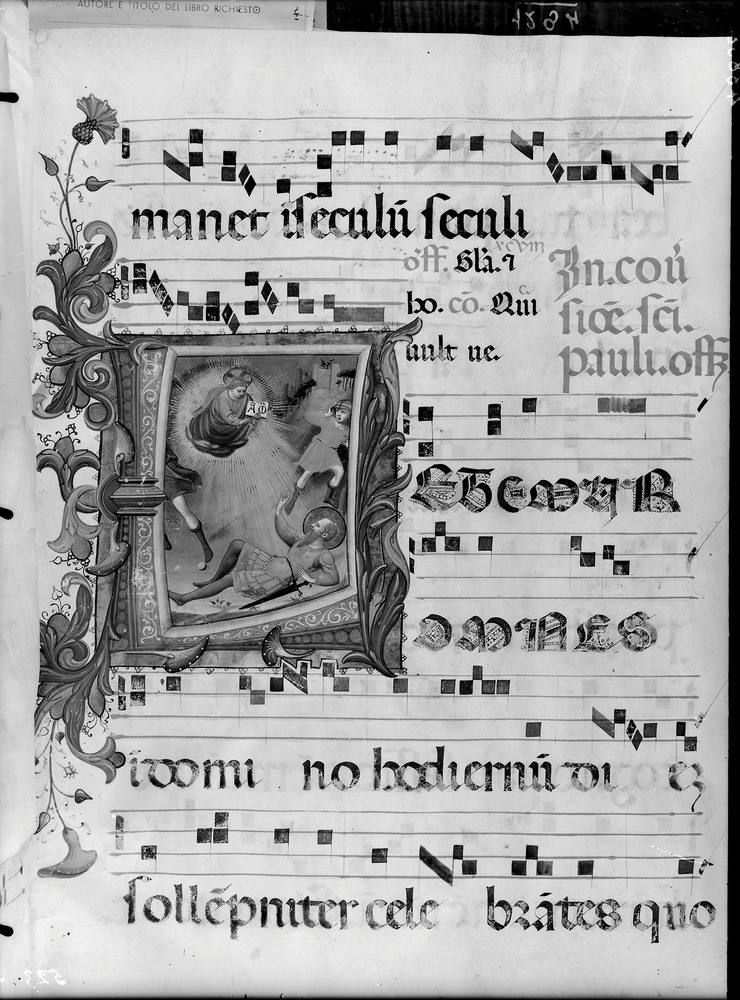 AUTORE E TITOLO DEL LIBRO RICHIESTO
manet ĩ seculũ seculi
off. Gla. ⁊
xcviii
bo. cõ. Qui
uult ue.
In. coũ
sioẽ. sci.
pauli. off
ETEMUR
OMNES
ĩ domi no hodiernũ di eʒ
sollẽpniter cele brãtes quo